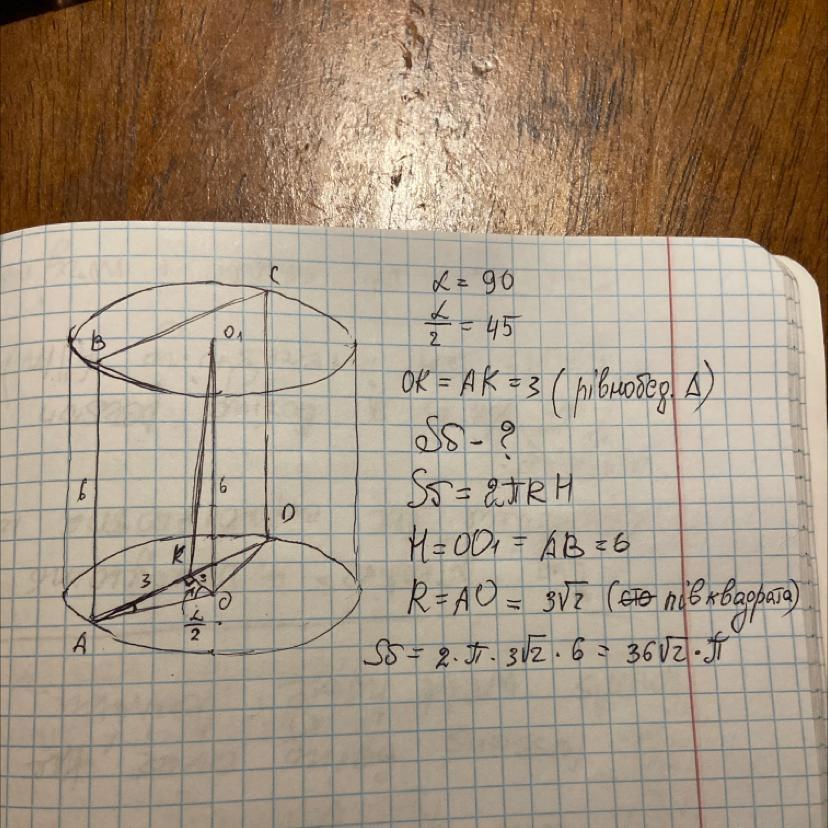 C
B
O₁
6
6
D
K
3
3
O
α/2
A
α = 90
α/2 = 45
OK = AK = 3 ( рівнобед. Δ)
Sδ - ?
Sδ = 2πRH
H = OO₁ = AB = 6
R = AO = 3√2 ( пів квадрата)
Sδ = 2·π·3√2·6 = 36√2·π